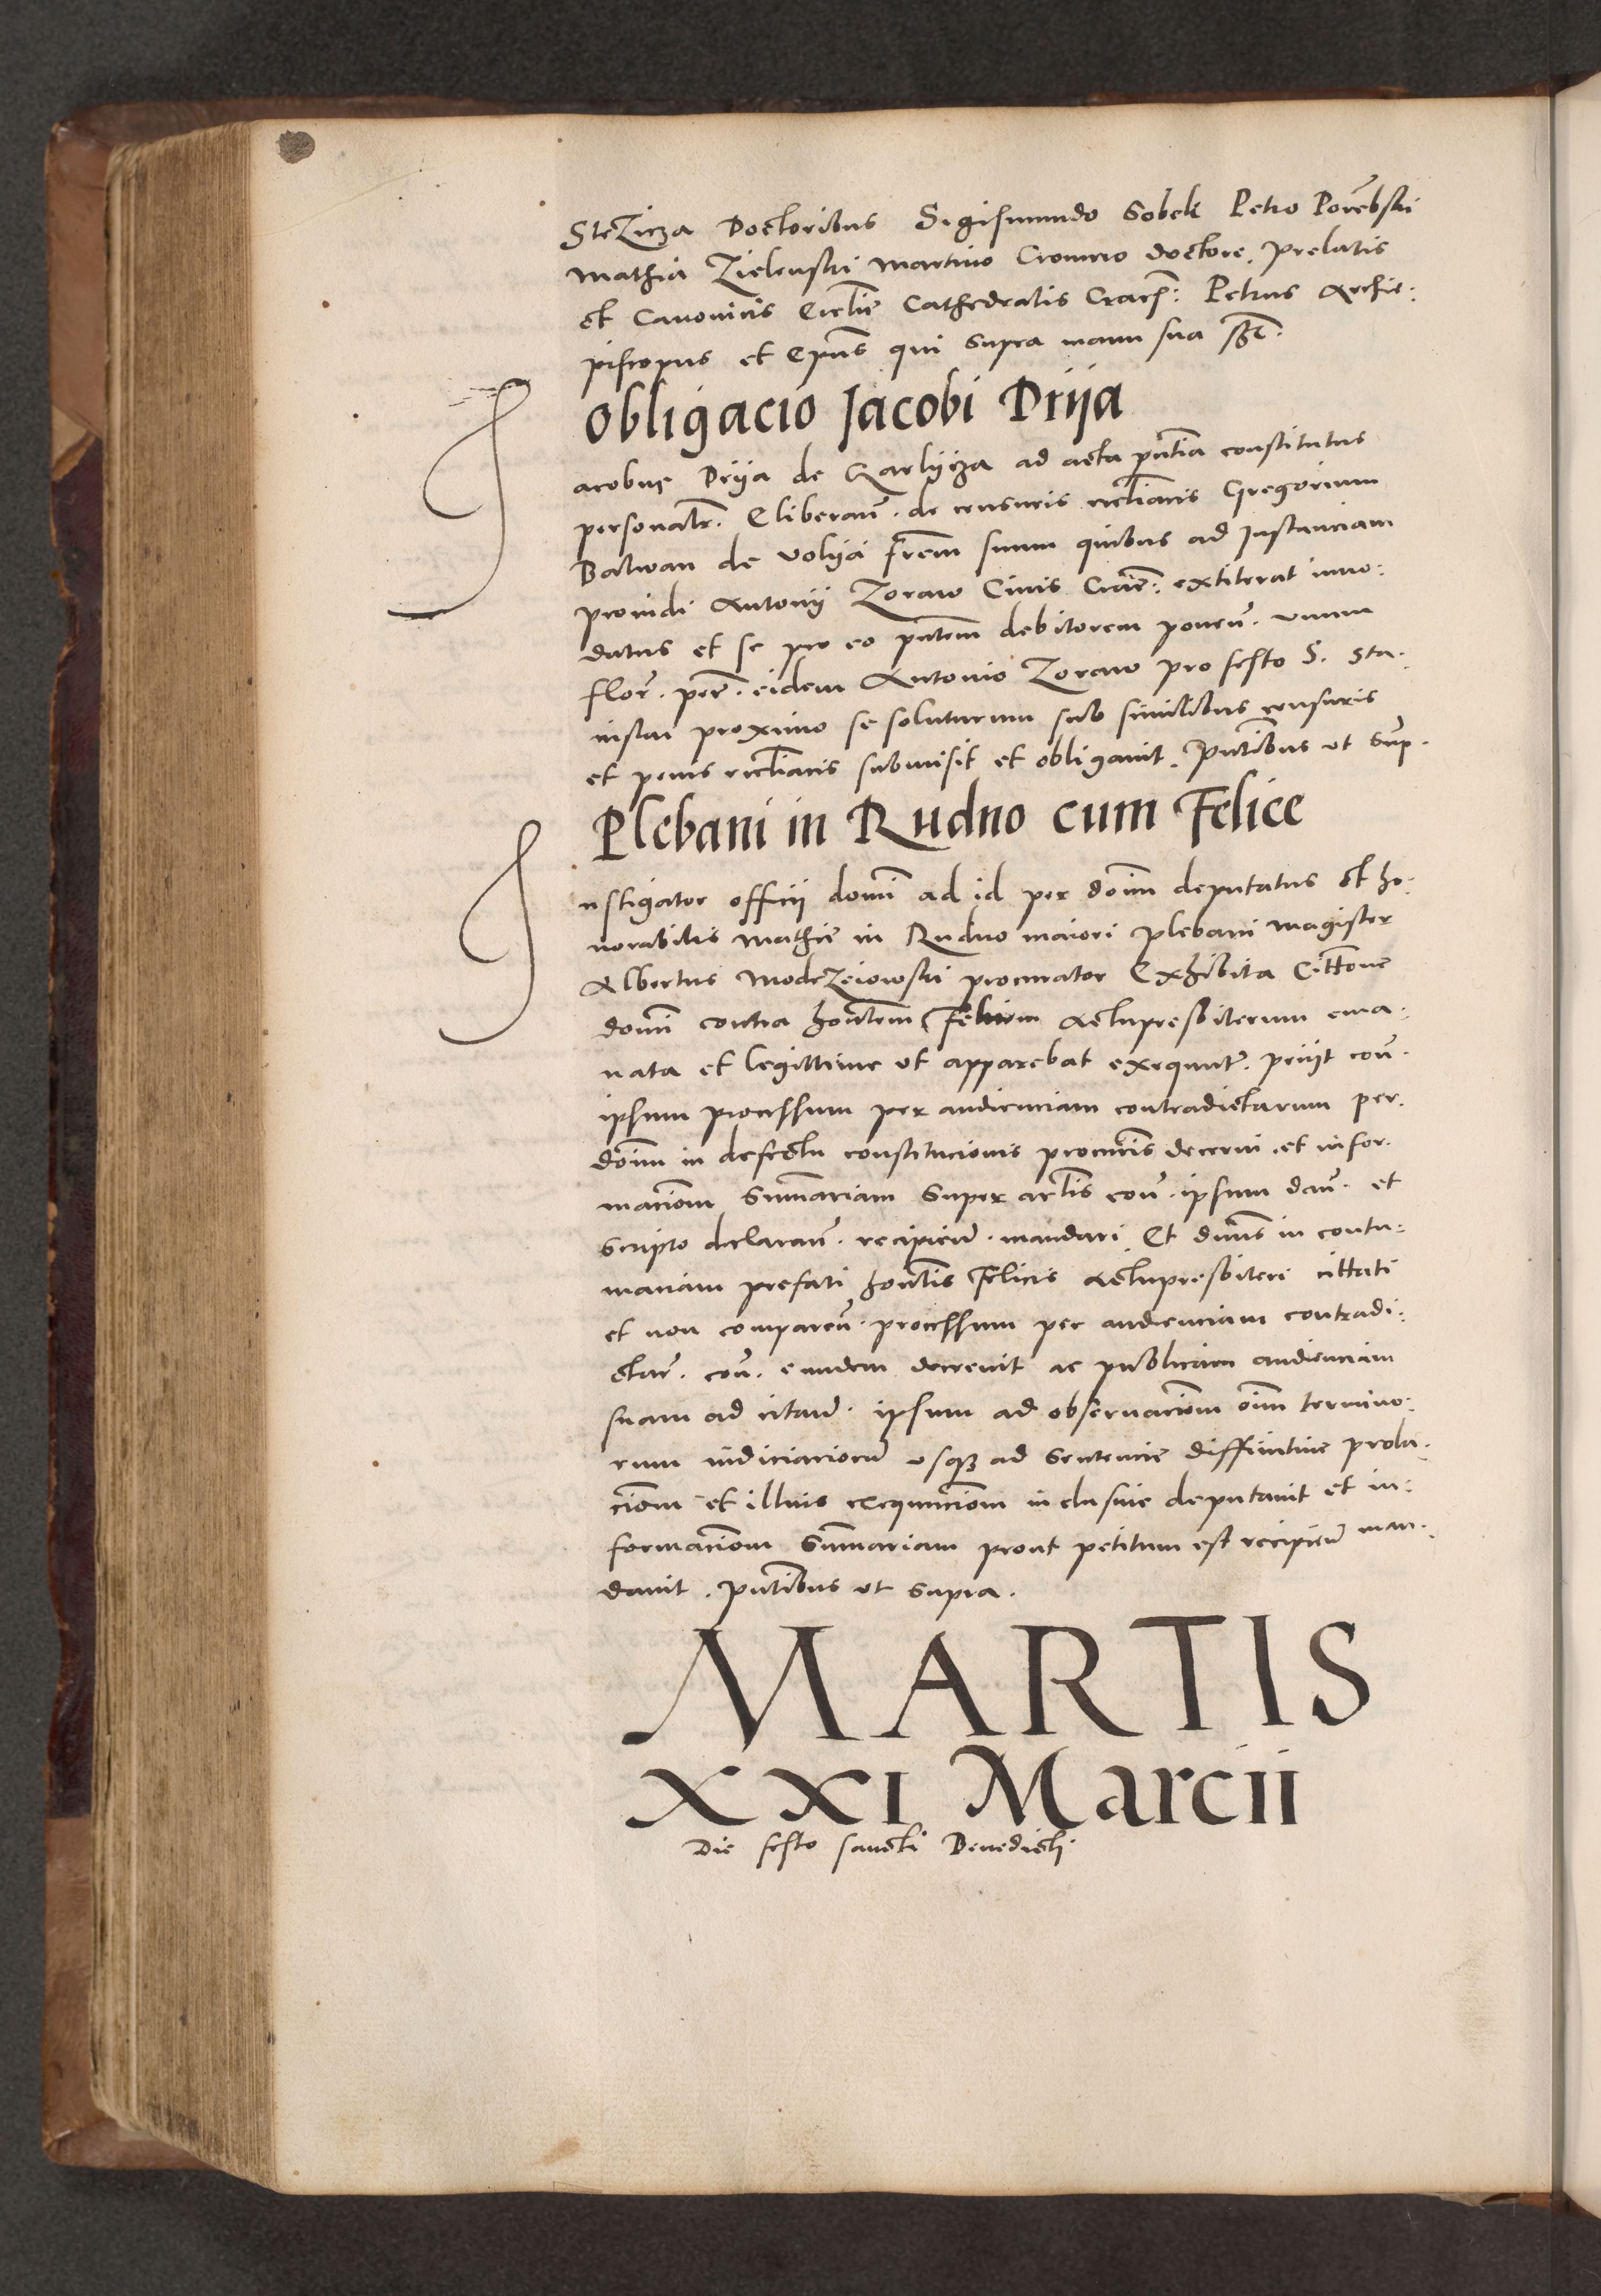 SteZicza Doctoribus Sigismundo Sobek Petro Porēbski
Mathia Zielenski Martino Cromero doctore. prelatis
et Canonicis Ecclie Cathedralis Crach: Petrus Archie:
piscopus et Epūs qui supra manu sua sst.
Obligacio Jacobi Drija
Jacobus Drija de Karlijcza ad acta pūtia constitutus
personalr. Eliberan̄. de censuris eccliacis Gregorium
Balwan de volija frem̄ suum quibus ad Instanciam
prouidi Antonij Zoraw Ciuis Craie: extiterat inno:
datus et se pro eo pn̄tem debitorem ponen̄. vnum
flor. per. eidem Antonio Zoraw pro festo S. Sta:
nislai proximo se soluturum sub similibus censuris
et penis eccliacis submisit et obligauit. Pn̄tibus ut sup.
Plebani in Rudno cum Felice
Instigator officij domi ad id per dom̄ deputatus et ho:
norabilis Mathie in Rudno maiori plebani magister
Albertus ModrZeiowski procurator Exhibita Cittone
domi contra hon̄tem Felicem Altipresbiterum ema:
nata et legittime ut apparebat exequut̄. petijt con̄.
ipsum processum per audienciam contradictarum per.
dom̄ in defectu constitucionis procur̄is decerni. et infor.
macionem Summariam super artlis con̄. ipsum dan̄. et
scripto declaran̄. recipien̄. mandari. Et dn̄us in contu:
maciam prefati hon̄tis Felicis Altipresbiteri cittati
et non comparen̄. processum per audienciam contradi:
ctar. con̄. eundem decreuit ac publicam audienciam
suam ad citan̄. ipsum ad obseruacion̄em oīm termino:
rum iudiciariorum usq3 ad Sentencie diffinitiue prola:
cionem et illius exequucionem inclusiue deputauit et in:
formacionem Summariam prout petitum est recipien̄ man:
dauit. Pn̄tibus ut supra.
MARTIS
XXI Marcii
Die festo sancti Benedicti